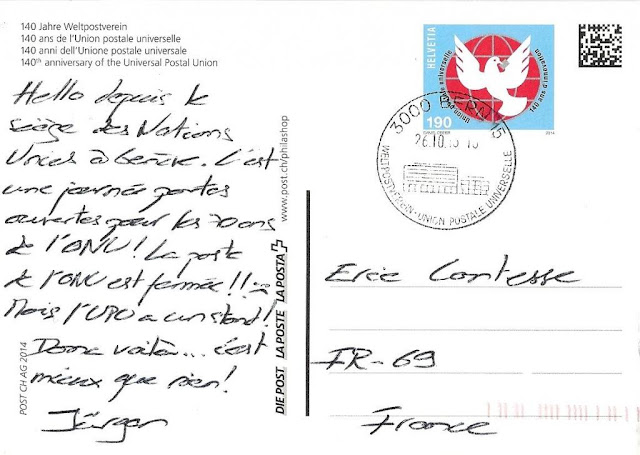 140 Jahre Weltpostverein
140 ans de l'Union postale universelle
140 anni dell'Unione postale universale
140th anniversary of the Universal Postal Union
Hello depuis le
siège des Nations
Unies à Genève. C'est
une journée portes
ouvertes pour les 70 ans
de l'ONU! La poste
de l'ONU est fermée!!
Mais l'UPU a un stand!
Donc voilà... c'est
mieux que rien!
Jürgen
POST CH AG 2014
www.post.ch/philashop
DIE POST LA POSTE LA POSTA
HELVETIA
190
2014
140 ans d'innovation
3000 BERN 15
26.10.15
WELTPOSTVEREIN - UNION POSTALE UNIVERSELLE
Eric Contesse
FR-69
France